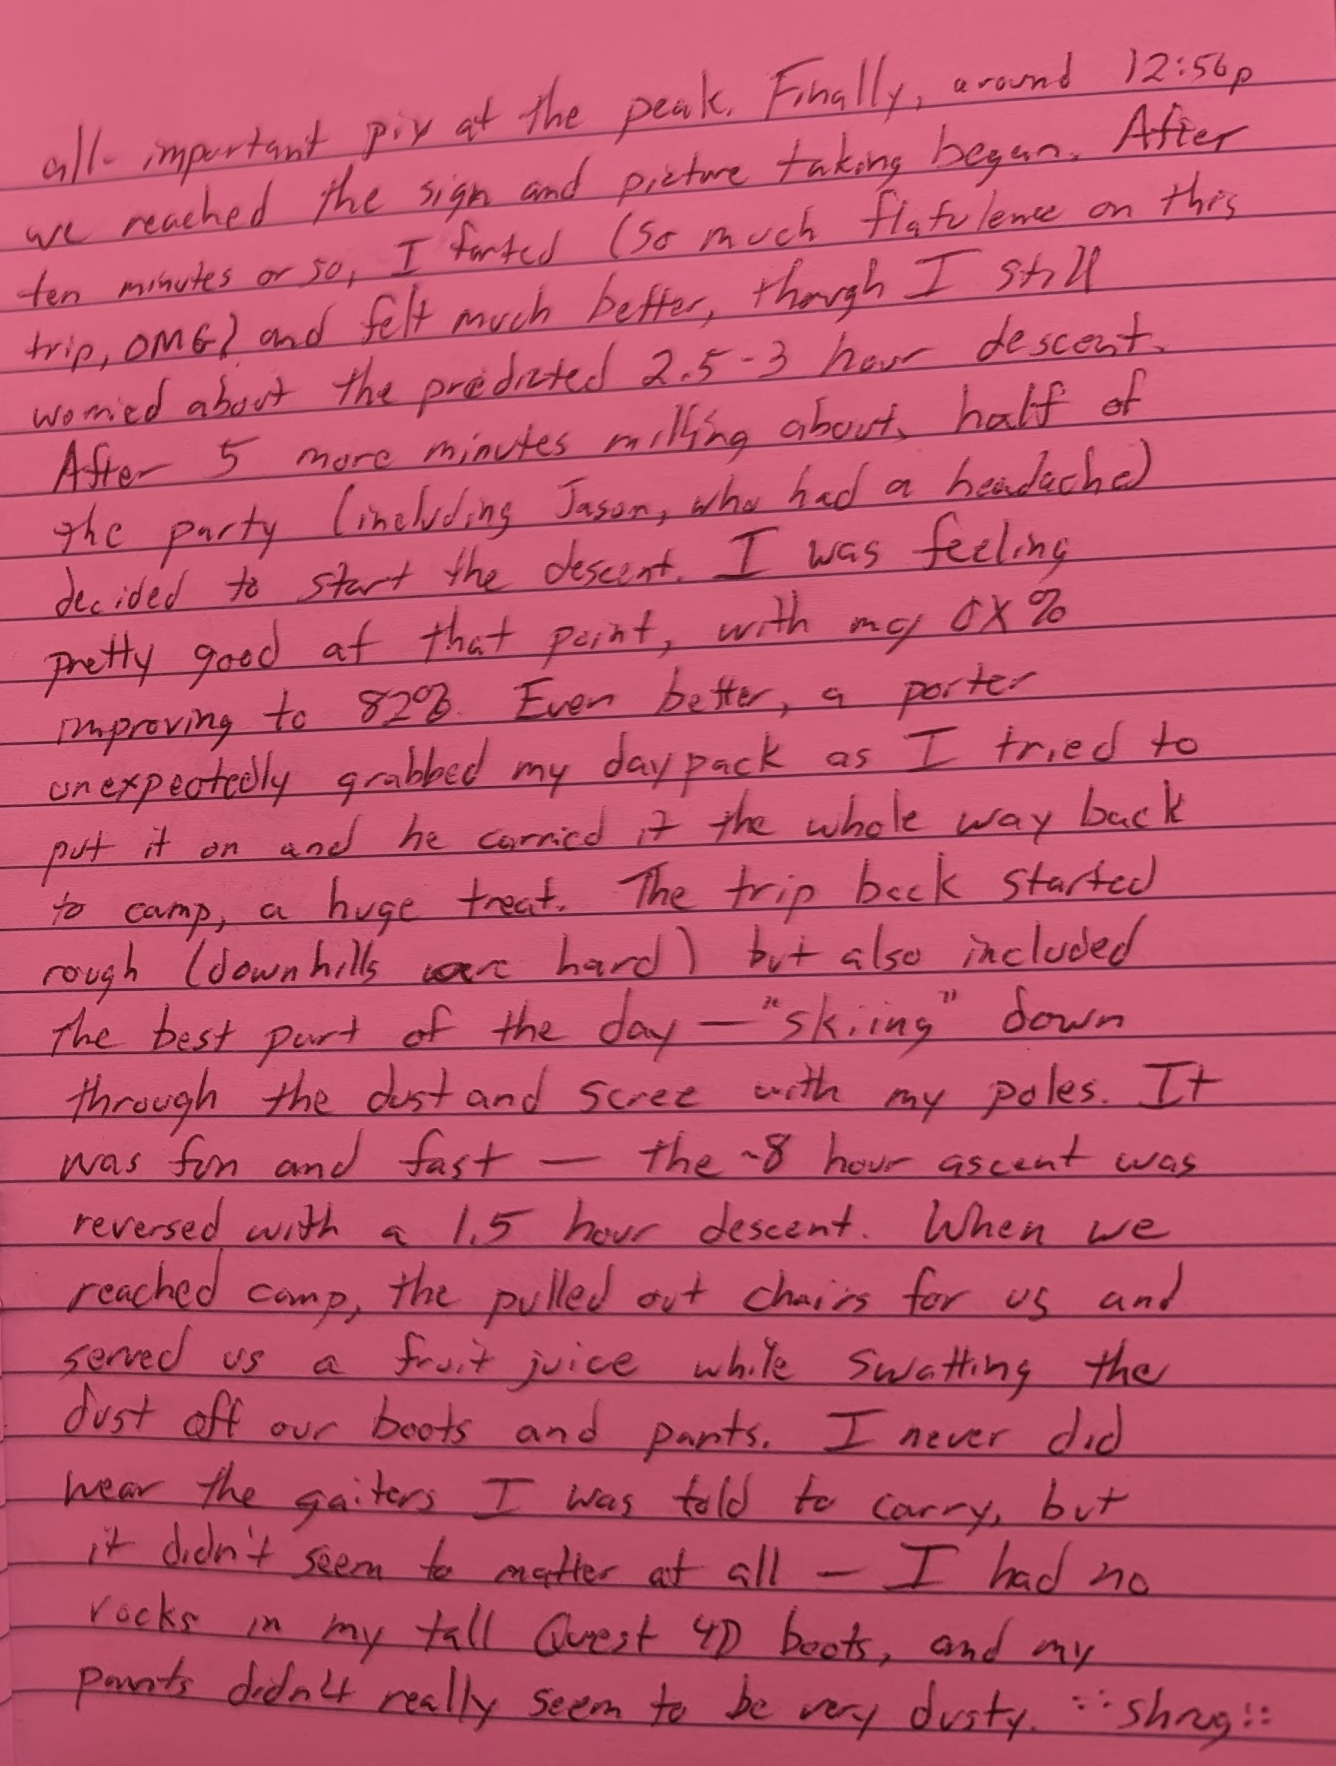 all-important pix at the peak. Finally, around 12:56p
we reached the sign and picture taking began. After
ten minutes or so, I farted (so much flatulence on this
trip, OMG) and felt much better, though I still
worried about the predicted 2.5-3 hour descent.
After 5 more minutes milling about, half of
the party (including Jason, who had a headache)
decided to start the descent. I was feeling
pretty good at that point, with my OX%
improving to 82%. Even better, a porter
unexpectedly grabbed my daypack as I tried to
put it on and he carried it the whole way back
to camp, a huge treat. The trip back started
rough (downhills were hard) but also included
the best part of the day — "skiing" down
through the dust and scree with my poles. It
was fun and fast — the ~8 hour ascent was
reversed with a 1.5 hour descent. When we
reached camp, the pulled out chairs for us and
served us a fruit juice while swatting the
dust off our boots and pants. I never did
wear the gaiters I was told to carry, but
it didn't seem to matter at all — I had no
rocks in my tall Quest 4D boots, and my
pants didn't really seem to be very dusty. ::shrug::